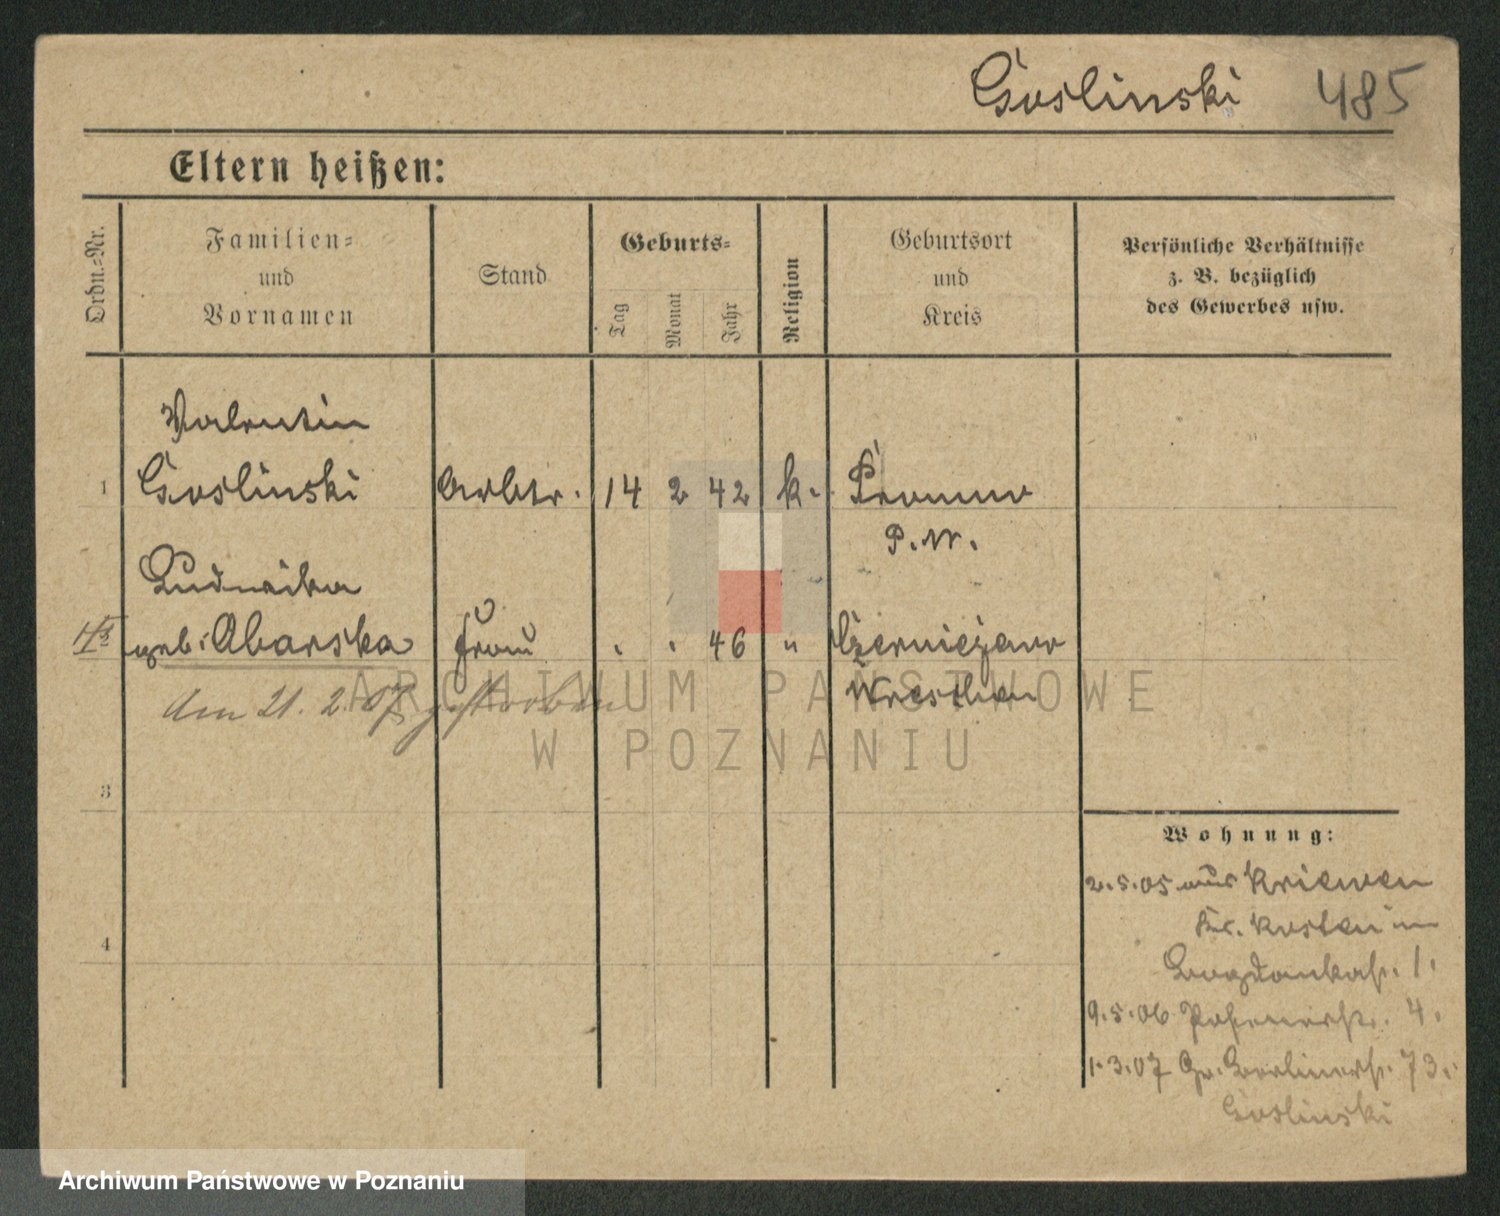 Goslinski 485
Eltern heißen:
Ordn.-Nr.
Familien-
und
Vornamen
Stand
Geburts-
Tag
Monat
Jahr
Religion
Geburtsort
und
Kreis
Persönliche Verhältnisse
z. B. bezüglich
des Gewerbes usw.
Valentin
1 Goslinski Arbtr. 14 2 42 k.
P. W.
Ludwika
geb. Abarska Frau " " 46 " Czerniejewo
Wreschen
Am 21. 2. 07 gestorben
3
4
Wohnung:
2.5.05 aus Kriewen
Kr. Kosten in
Bogdankastr. 1.
9.5.06 Posenerstr. 4.
1.3.07 Gr. Berlinerstr. 73.
Goslinski
ARCHIWUM PAŃSTWOWE
W POZNANIU
Archiwum Państwowe w Poznaniu